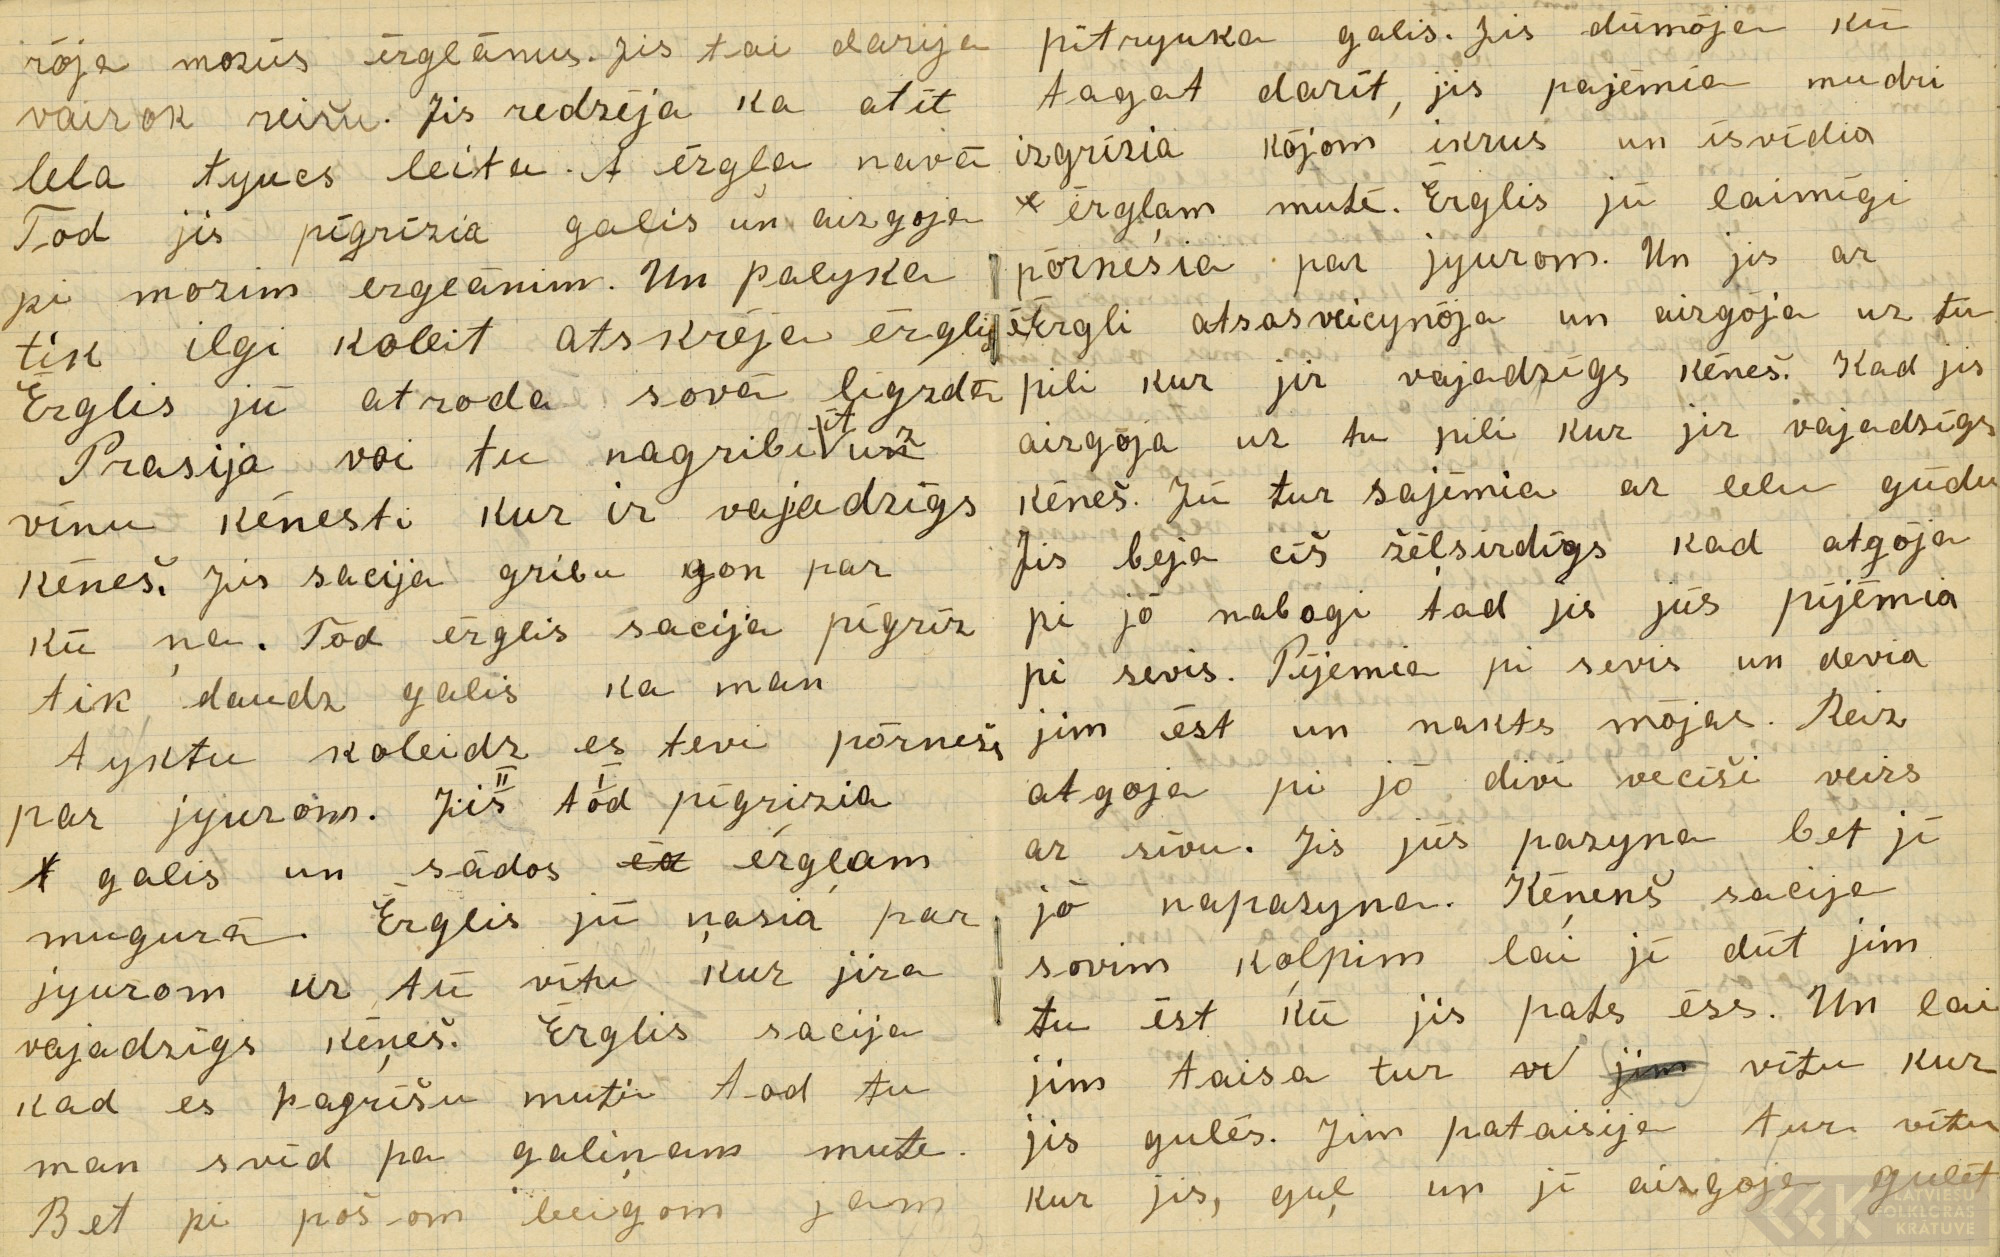 rōja mozūs ērgļānus. Jis tai darija
vairok reižu. Jis redzēja ka atīt
lela tyucs leita. A ērgļa navā
Tod jis pīgrīzia galis un aizgoja
pi mozim ergļānim. Un palyka
tik ilgi koleit atskrēja ērglis
Ērglis jū atroda sovā ligzdā
Prasija voi tu nagribi īt uz
vīnu kēnesti kur ir vajadzīgs
kēneš. Jis sacija gribu gon par
kū ņa. Tod ērglis sacija pīgrīz
tik daudz galis ka man
tyktu koleidz es tevi pōrneśs
par jyurom. Jis II tod I pīgrizia
galis un sādos ērgļam
mugurā. Ērglis jū ņasia par
jyurom uz tū vītu kur jira
vajadzīgs kēņeš. Ērglis sacija
kad es pagrīšu muti tod tu
man svīd pa galiņam mute.
Bet pi poš om beigom jam
pītryuka galis. Jis dūmōja kū
tagat darīt, jis pajēmia mudri
izgrīzia kōjom ikrus un īsvīdia
ērgļam mutē. Ērglis jū laimīgi
pōrneśia par jyurom. Un jis ar
Ērgli atsasveicynōja un aizgōja uz tū
pili kur jir vajadzīgs kēneš. Kad jis
aizgōja uz tu pili kur jir vajadzīgs
kēneš. Jū tur sajēmia ar lelu gūdu
Jis beja cīš žēļsirdīgs kad atgōja
pi jō nabogi tad jis jūs pījēmia
pi sevis. Pījemia pi sevis un devia
jim ēst un nakts mōjas. Reiz
atgoja pi jō divi vecīši veirs
ar sīvu. Jis jūs pazyna bet jī
jō napazyna. Kēņenš sacija
sovim kolpim lai jī dūt jim
tu ēst kū jis pats ēss. Un lai
jim taisa tur vītu kur
jis gulēs. Jim pataisija tur vītu
kur jis, guļ un jī aizgoja gulēt
LATVIEŠU
FOLKLORAS
KRĀTUVE